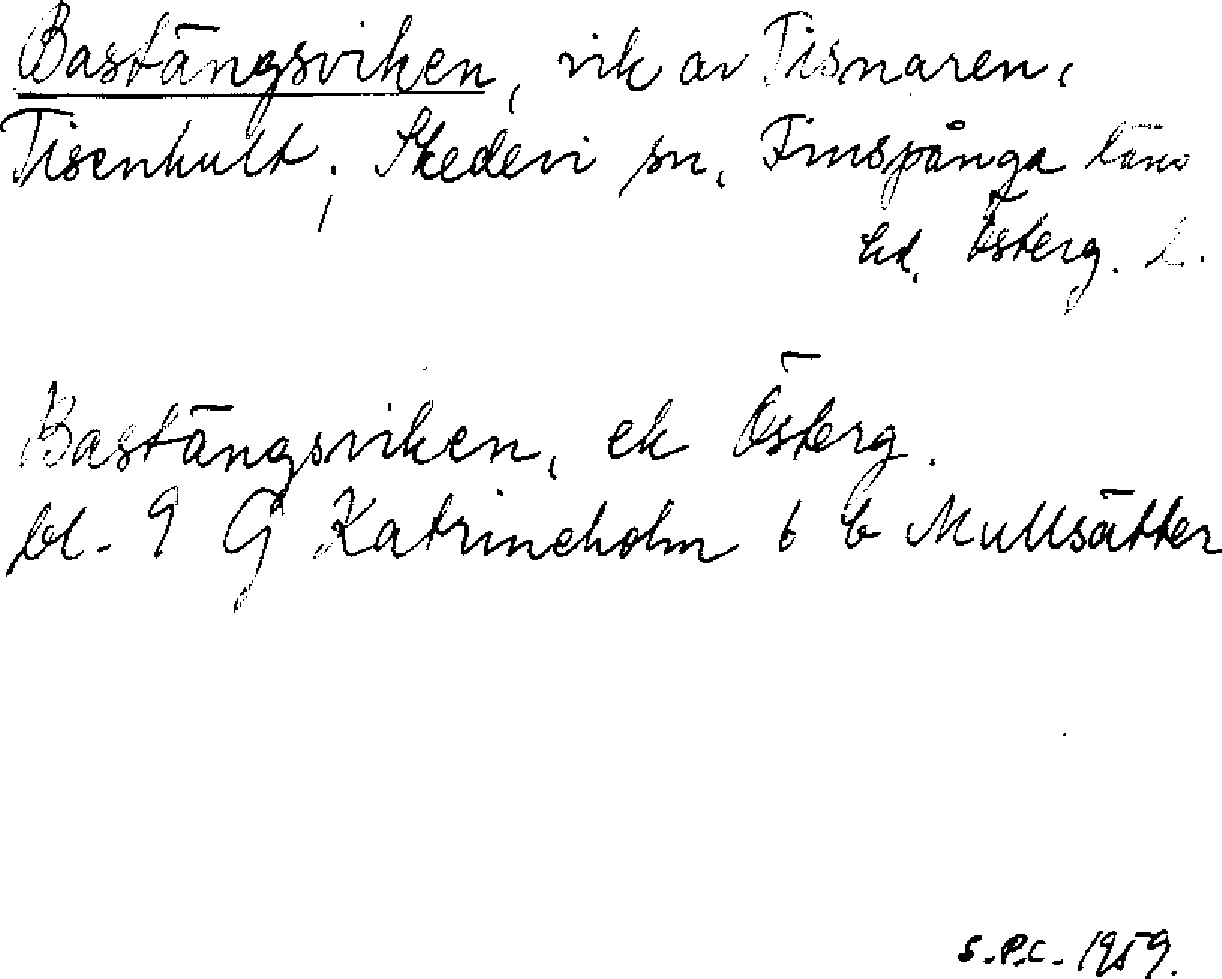 Bastängsviken, vik av Tisnaren,
Tisenhult, Skedevi sn, Finspånga läns
hd. Österg. l.
Bastängsviken, ek Österg.
bl. 9 G Katrineholm 6 b Mullsätter
S.P.C. 1959.